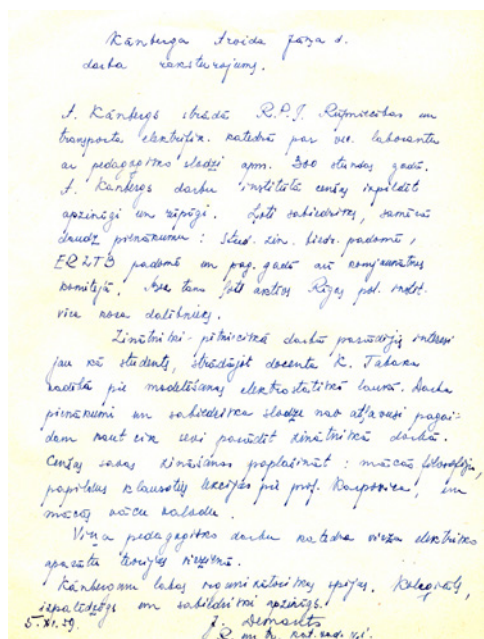 Kānberga Arvīda Jāņa d.
darba raksturojums.
A. Kānbergs strādā R.P.I. Rūpniecības un
transporta elektrifik. katedrā par vec. laborantu
ar pedagoģisko slodzi apm. 300 stundas gadā.
A. Kānbergs darbu institūtā cenšas izpildīt
apzinīgi un rūpīgi. Ļoti sabiedrisks, samērā
daudz pienākumu: Stud. zin. biedr. padomē,
padomē un pag. gadā arī komjaunatnes
komitejā. Bez tam ļoti aktīvs Rīgas pol. inst.
vīru kora dalībnieks.
Zinātniski-pētnieciskā darbā parādījis interesi
jau kā students, strādājot docenta K. Tabaka
vadībā pie modelēšanas elektrostatiskā laukā. Darba
pienākumi un sabiedriska slodze nav atļāvusi pagai-
dam kaut cik sevi parādīt zinātniskā darbā.
Cenšas savas zināšanas paplašināt: mācās filosofiju,
papildus klausoties lekcijas pie prof. Karpoviča, un
mācās vācu valodu.
Viņa pedagoģisko darbu katedra virza elektrisko
aparātu teorijas virzienā.
Kānbergam labas organizatoriskas spējas. Koleģiāls,
izpalīdzīgs un sabiedriski apzinīgs.
5.XI.59. J.
R un tr. kat. vad. v.i.